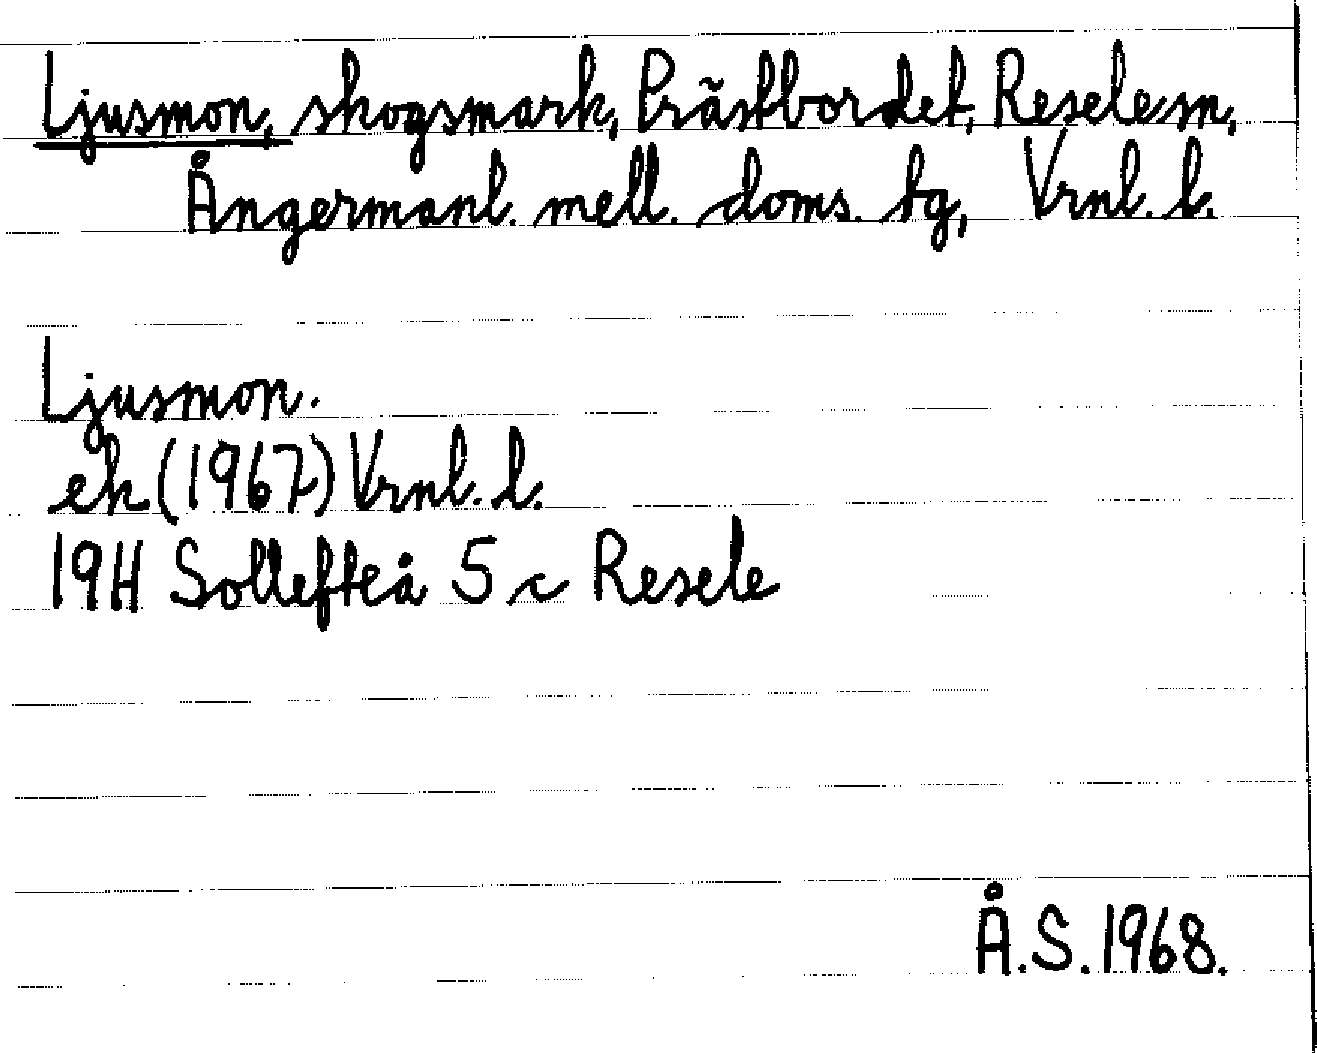 Ljusmon, skogsmark, Prästbordet, Resele sn,
Ångermanl. mell. doms. tg, Vrnl. l.
Ljusmon.
ek (1967) Vrnl. l.
19H Sollefteå 5 c Resele
Å.S. 1968.